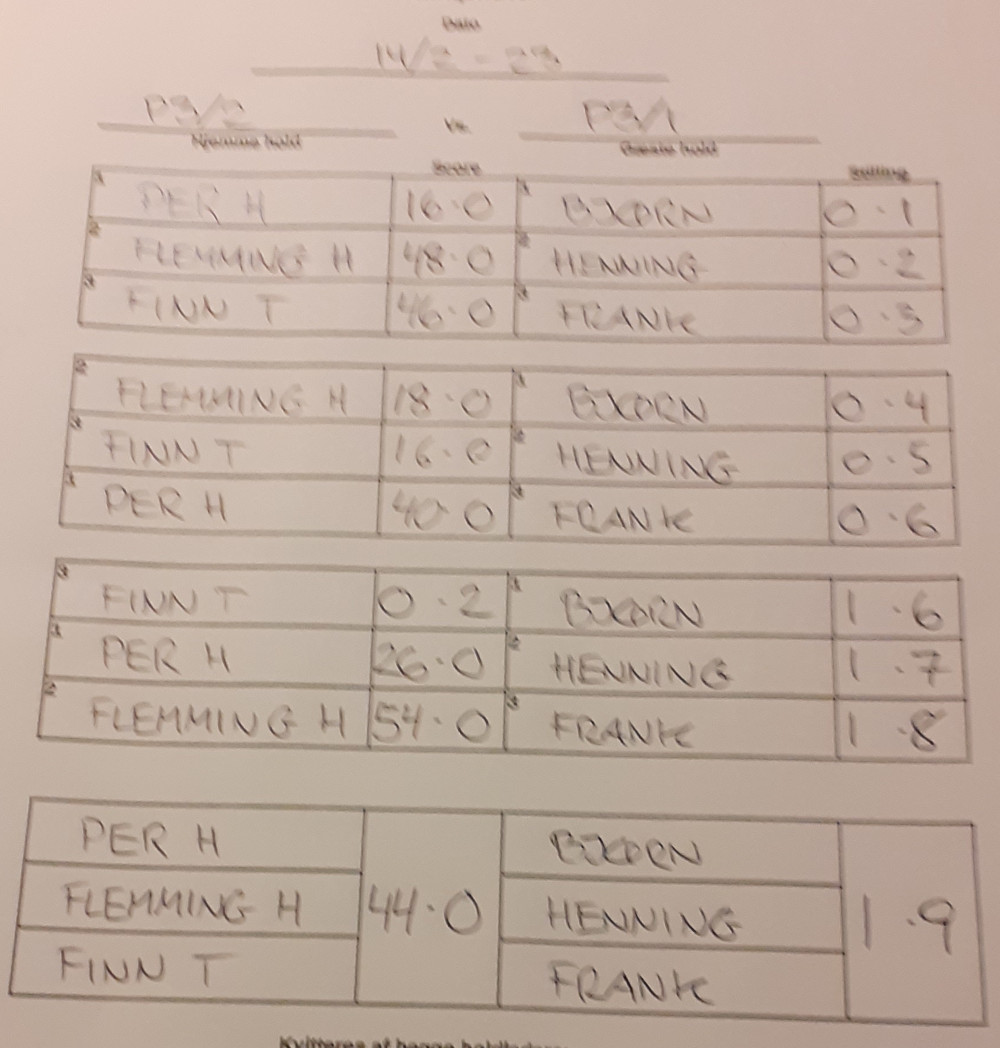 Dato
14/2 - 23
P3/2 Vs. P3/1
Hjemme hold Gæste hold
Score Stilling
1 PER H 16·0 1 BJOERN 0·1
2 FLEMMING H 48·0 2 HENNING 0·2
3 FINN T 46·0 3 FRANK 0·3
2 FLEMMING H 18·0 1 BJOERN 0·4
3 FINN T 16·0 2 HENNING 0·5
1 PER H 40·0 3 FRANK 0·6
3 FINN T 0·2 1 BJOERN 1·6
1 PER H 26·0 2 HENNING 1·7
2 FLEMMING H 54·0 3 FRANK 1·8
PER H BJOERN
FLEMMING H 44·0 HENNING 1·9
FINN T FRANK
Kvitteres af begge